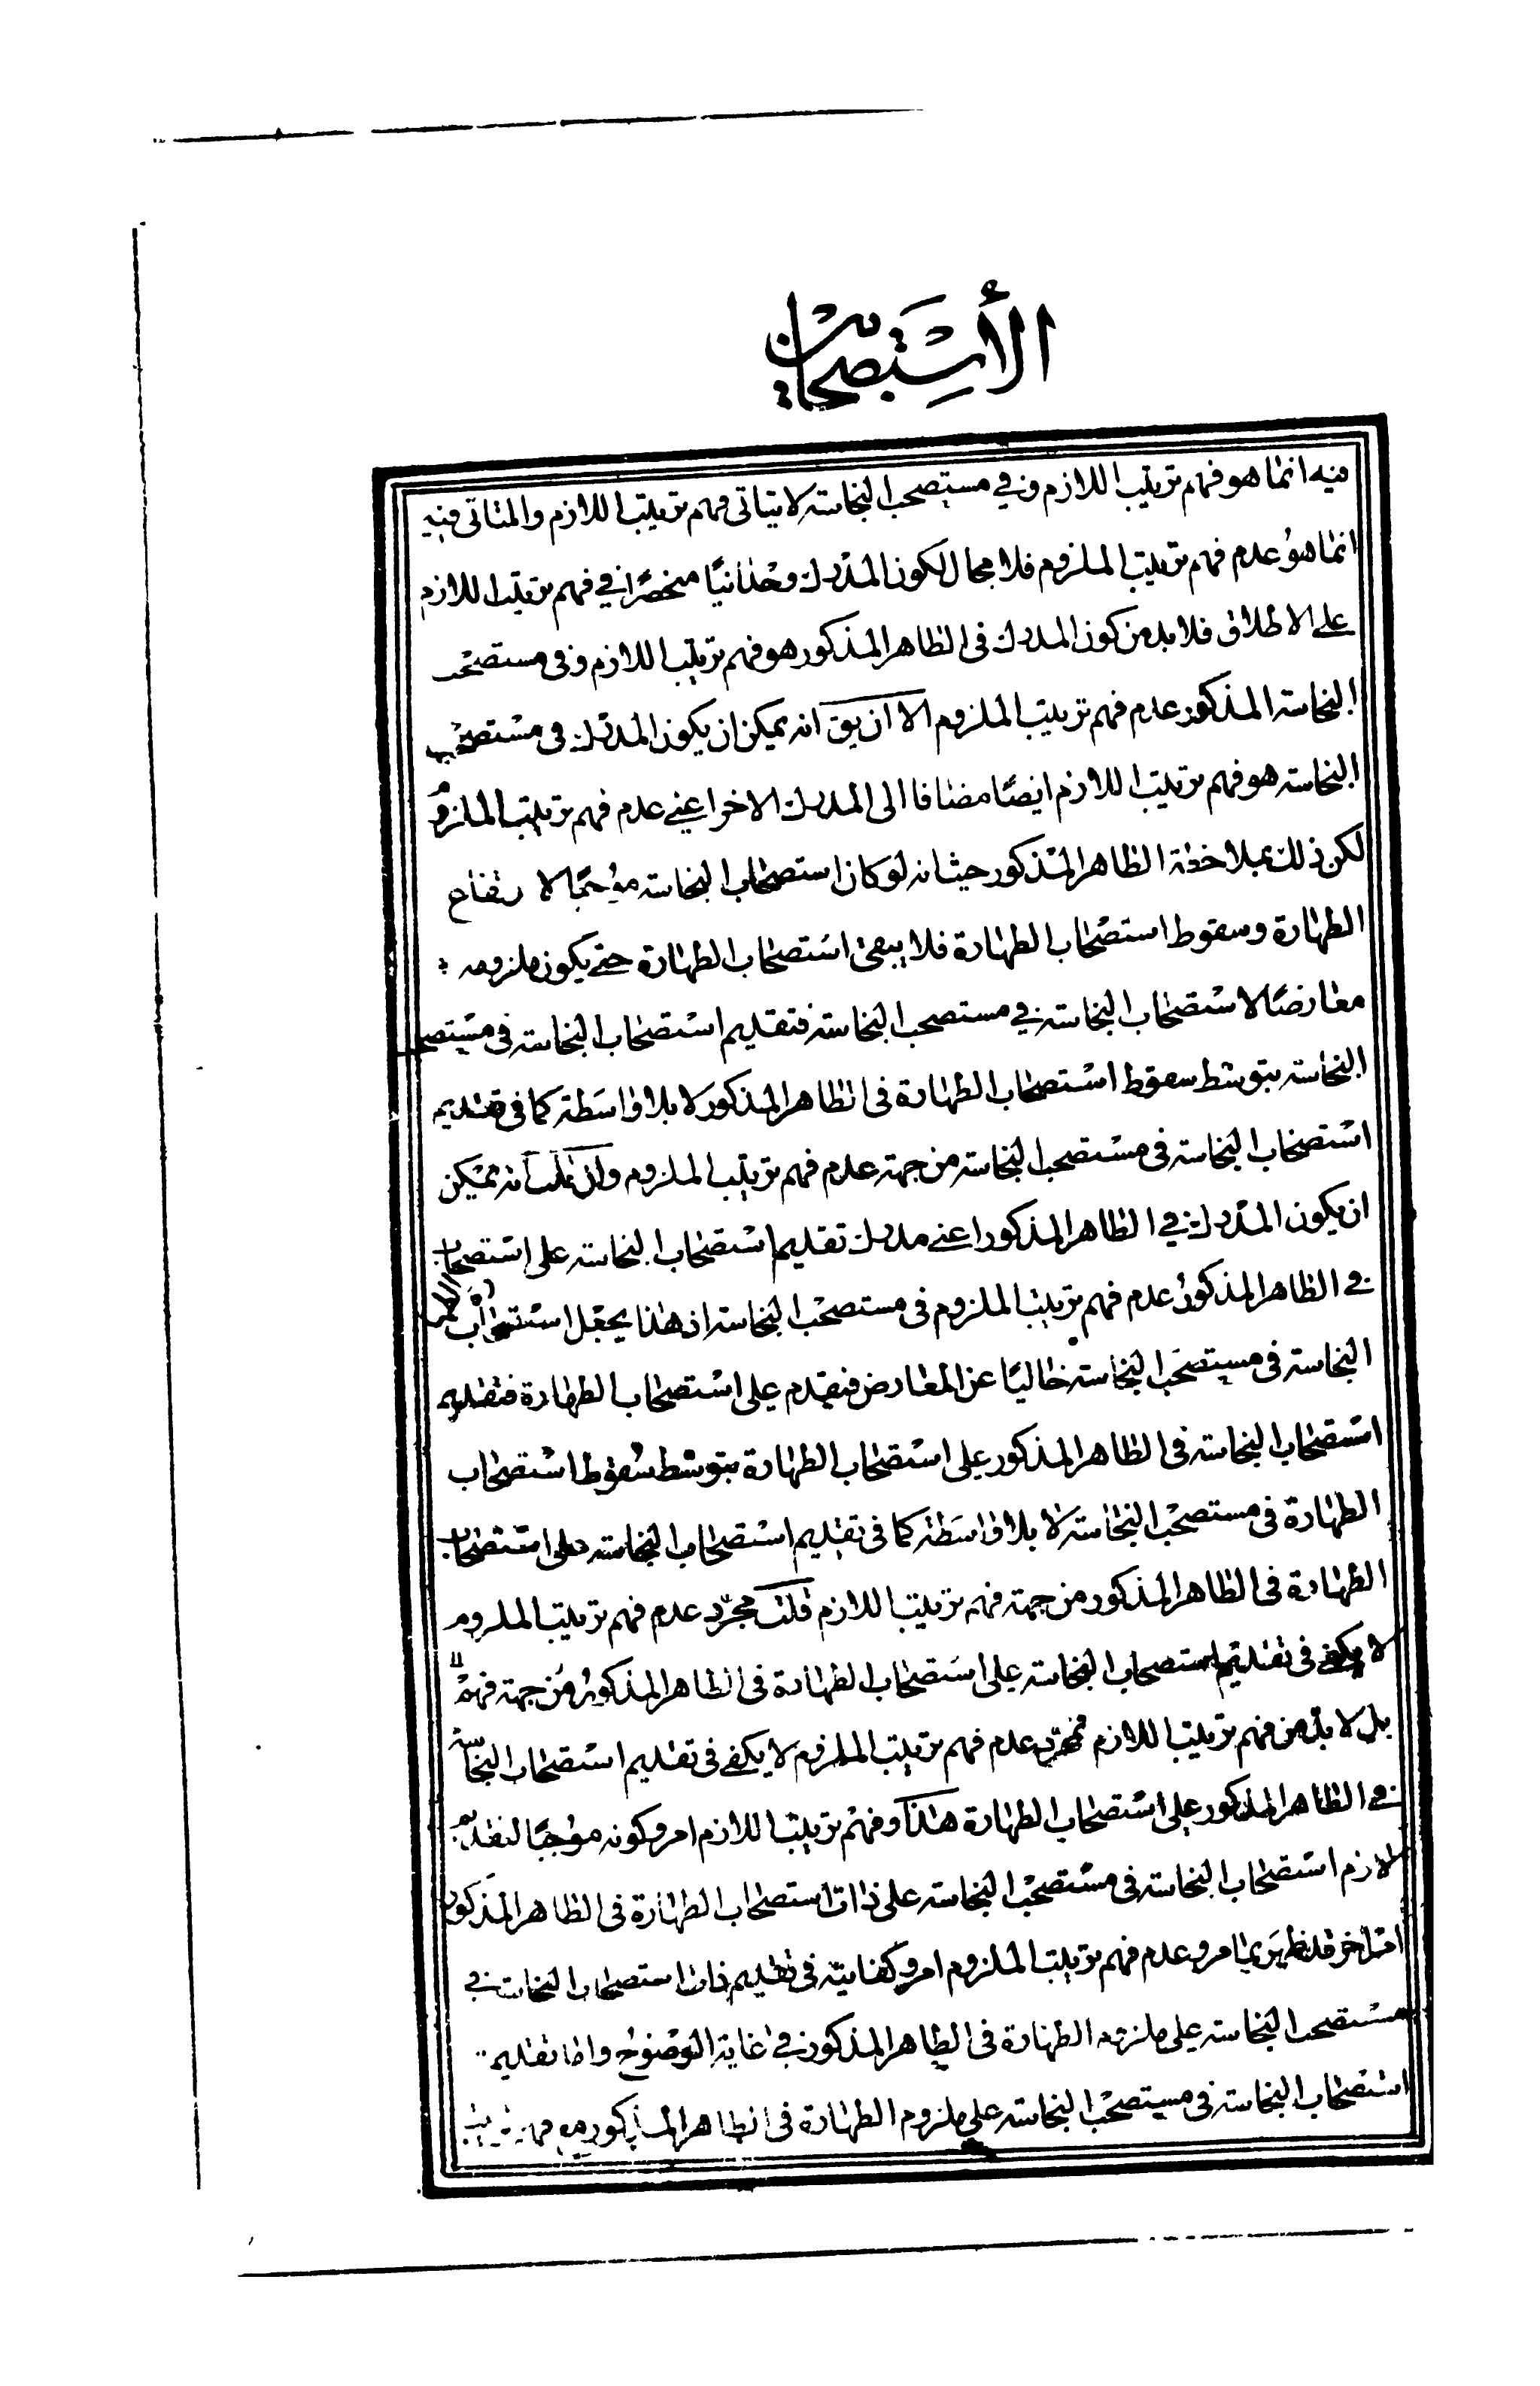 الأستصحاب
فيه انما هو فهم ترتيب اللازم وفي مستصحب النجاسته لا يتاتى فهم ترتيب اللازم والمتاتى فيه
انما هو عدم فهم ترتيب الملزوم فلا مجال لكون المدرك وحدانيًا منحصرًا في فهم ترتيب اللازم
على الاطلاق فلا بد من كون المدرك فى الظاهر المذكور هو فهم ترتيب اللازم وفى مستصحب
النجاسته المذكور عدم فهم ترتيب الملزوم الا ان يق انه يمكن ان يكون المدرك فى مستصحب
النجاسته هو فهم ترتيب اللازم ايضًا مضافا الى المدرك الاخر اعني عدم فهم ترتيب الملزوم
لكن ذلك بملاحظة الظاهر المذكور حيث انه لو كان استصحاب النجاسته موجبًا لارتفاع
الطهارة وسقوط استصحاب الطهارة فلا يبقى استصحاب الطهارة حتى يكون ملزومه
معارضًا لاستصحاب النجاسته في مستصحب النجاسته فتقديم استصحاب النجاسته فى مستصحب
النجاسته بتوسط سقوط استصحاب الطهارة فى الظاهر المذكور لا بلا واسطة كما فى تقديم
استصحاب النجاسته فى مستصحب النجاسته من جهته عدم فهم ترتيب الملزوم وان قلت انه يمكن
ان يكون المدرك في الظاهر المذكور اعنى مدرك تقديم استصحاب النجاسته على استصحاب الطهارة
في الظاهر المذكور عدم فهم ترتيب الملزوم فى مستصحب النجاسته اذ هذا يجعل استصحاب
النجاسته فى مستصحب النجاسته خاليًا عن المعارض فيقدم على استصحاب الطهارة فتقديم
استصحاب النجاسته فى الظاهر المذكور على استصحاب الطهارة بتوسط سقوط استصحاب
الطهارة فى مستصحب النجاسته لا بلا واسطة كما فى تقديم استصحاب النجاسته على استصحاب
الطهارة فى الظاهر المذكور من جهته فهم ترتيب اللازم قلت مجرد عدم فهم ترتيب الملزوم
لا يكفى فى تقديم استصحاب النجاسته على استصحاب الطهارة فى الظاهر المذكور من جهته فهم
بل لا بد من فهم ترتيب اللازم فمجرد عدم فهم ترتيب الملزوم لا يكفى فى تقديم استصحاب النجاسته
في الظاهر المذكور على استصحاب الطهارة هذا وفهم ترتيب اللازم امر وكونه موجبًا لتقديم
لازم استصحاب النجاسته فى مستصحب النجاسته على ذات استصحاب الطهارة فى الظاهر المذكور
امر اخر قد ظهر بما مر وعدم فهم ترتيب الملزوم امر وكفايته فى تقديم ذات استصحاب النجاسته في
مستصحب النجاسته على ملزوم الطهارة فى الظاهر المذكور في غاية الوضوح واما تقديم
استصحاب النجاسته فى مستصحب النجاسته على ملزوم الطهارة فى الظاهر المذكور